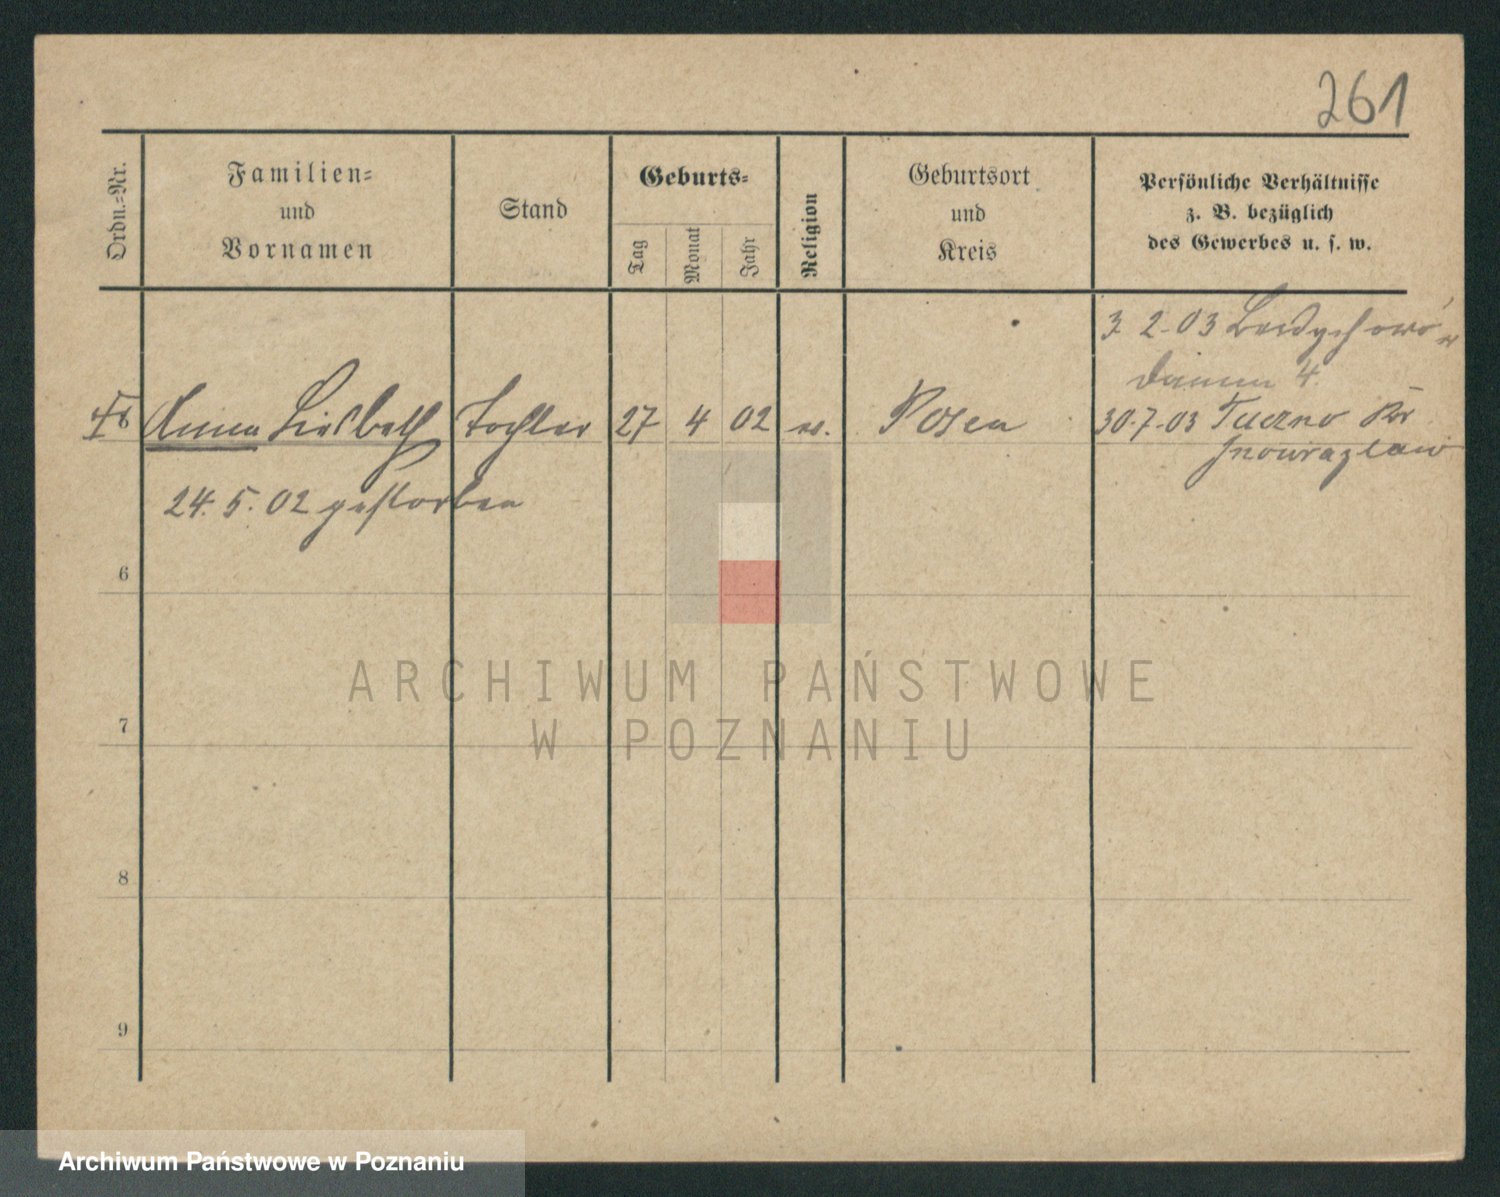 261
Ordn.-Nr.
Familien-
und
Vornamen
Stand
Geburts-
Tag
Monat
Jahr
Religion
Geburtsort
und
Kreis
Persönliche Verhältnisse
z. B. bezüglich
des Gewerbes u. s. w.
3. 2. 03
Damm 4.
Anna Liesbeth Tochter 27 4 02 Posen 30. 7. 03 Tuczno Kr
Inowrazlaw
24. 5. 02 gestorben
6
7
8
9
ARCHIWUM PAŃSTWOWE
W POZNANIU
Archiwum Państwowe w Poznaniu